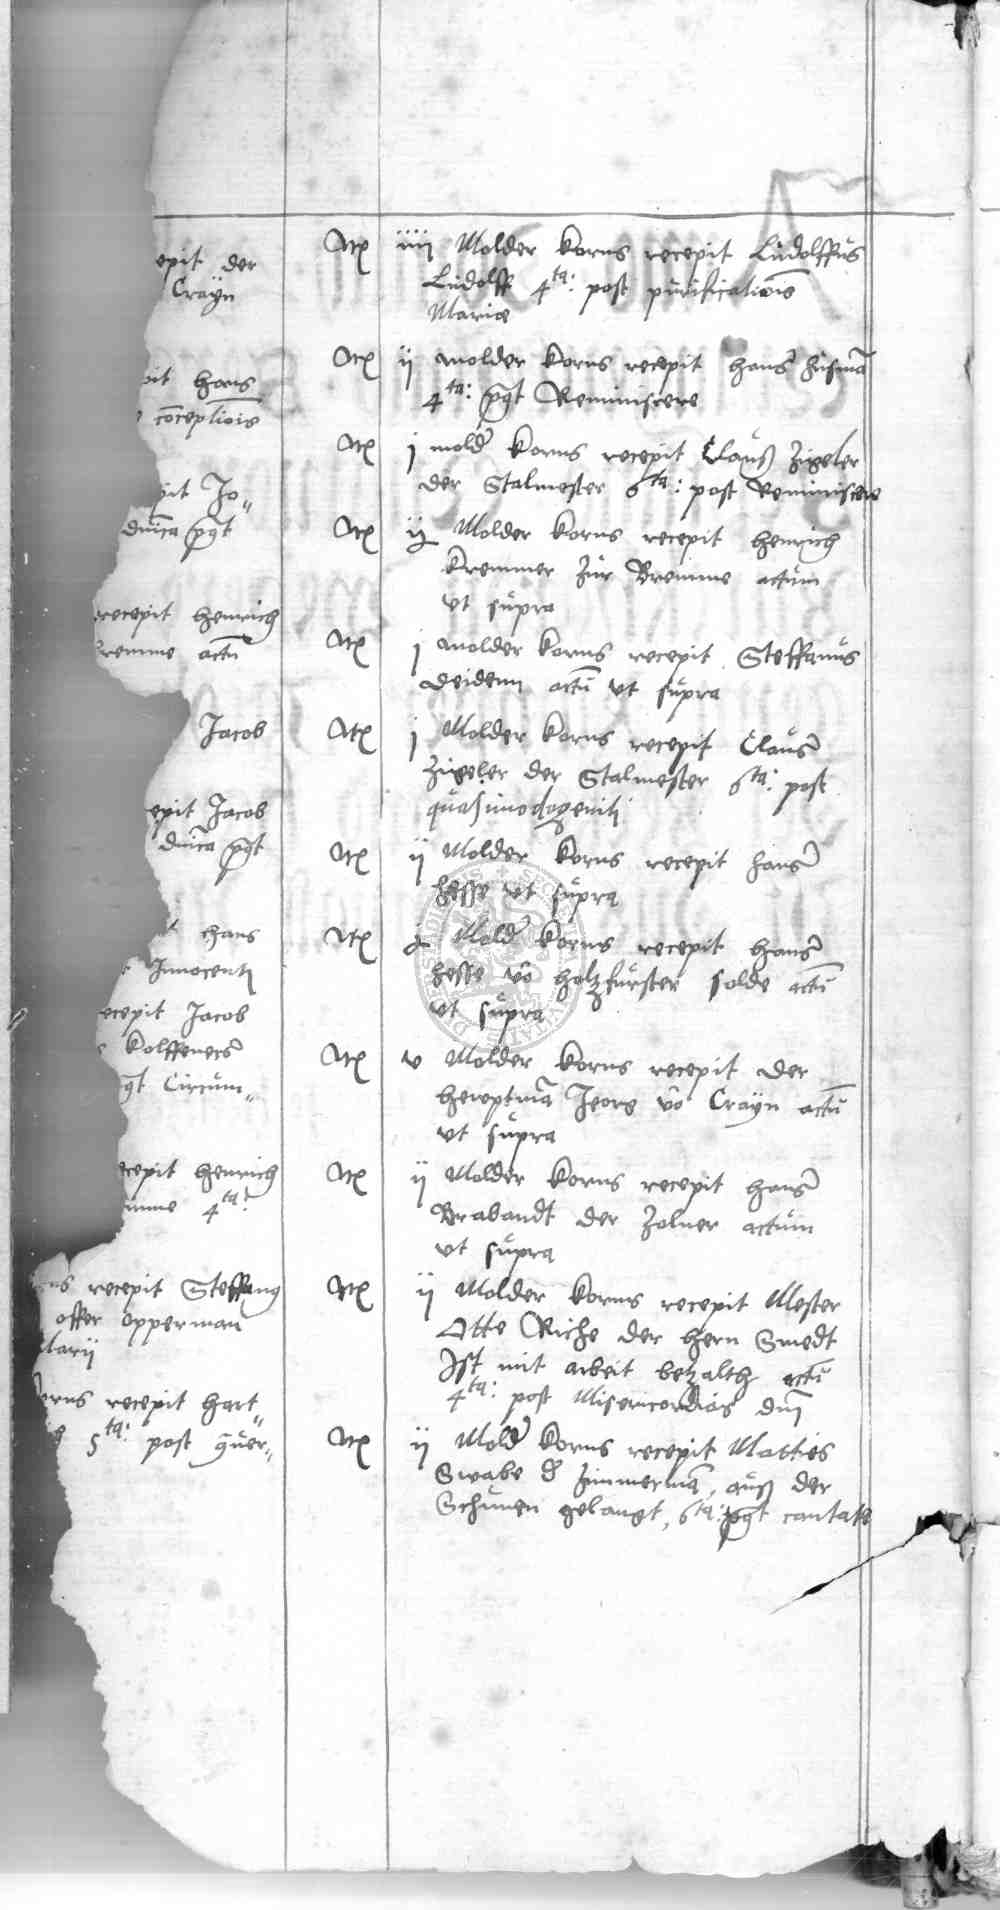 epit der
Crayn
pit Hans
conceptiois
pit Jo„
dnica pqt
recepit Henrich
remme actu
Jacob
epit Jacob
dnica pqt
Hans
Innocenti
ecepit Jacob
Kolffeners
qt Circum„
ecepit Henrich
mme 4ta:
ns recepit Steffanus
offer opperman
larij
orns recepit Hart„
5ta: post quer„
Itz iiij Molder korns recepit Ludolffus
Ludolff 4ta: post purificatiois
Marie
Itz ij molder korns recepit Hans Husma
4ta: pqt Reminiscere
Itz j mold korns recepit Claus Zigeler
der Stalmester 6ta: post Reminiscere
Itz ij Molder korns recepit Henrich
Kremmer zur Bremme actum
vt supra
Itz j molder korns recepit Steffanus
deidenn actu vt supra
Itz j Molder korns recepit Claus
Zigeler der Stalmester 6ta: post
quasimodogeniti
Itz ij Molder korns recepit Hans
Hesse vt supra
Itz Mold korns recepit Hans
Hesse vo holzfurster solde actu
vt supra
Itz v Molder korns recepit der
Hewptma Jeorg vo Crayn actu
vt supra
Itz ij Molder korns recepit Hans
Brabandt der Zolner actum
vt supra
Itz ij Molder korns recepit Mester
Otte Riche der hern Smedt
Ist mit arbeit betzalth actu
4ta: post Misericordias dni
Itz ij Mold korns recepit Matties
Swabe d Zimmerma, auß der
Schunen gelangt, 6ta: pqt cantate